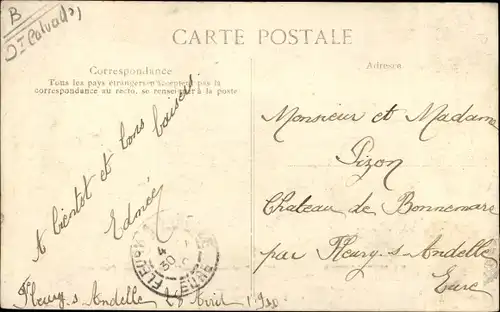 B
CARTE POSTALE
Correspondance
Tous les pays étrangers n'acceptent pas la
correspondance au recto, se renseigner à la poste
Adresse
A bientôt et bons baisers
Edmée
Monsieur et Madame
Pizon
Chateau de Bonnemare
par Fleury-s-Andelle
Eure
EURE
Fleury-s-Andelle Avril